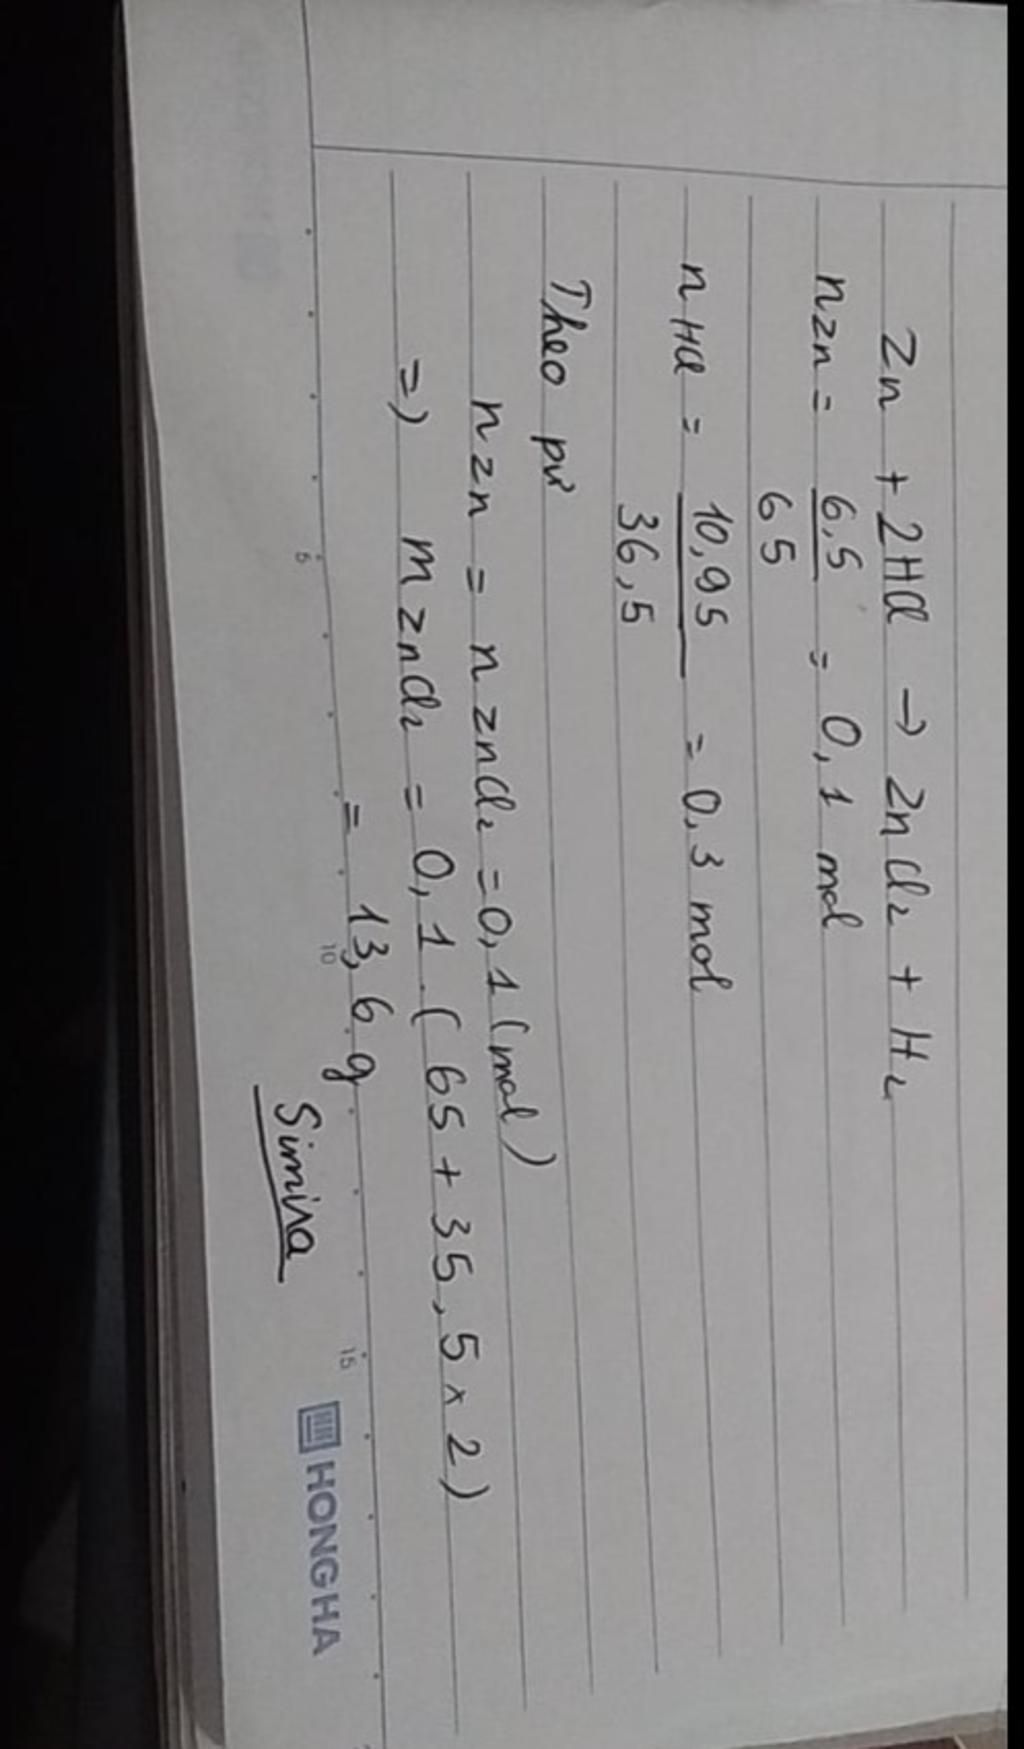 Zn + 2HCl → ZnCl₂ + H₂
nZn = 6,5 / 65 = 0,1 mol
nHCl = 10,95 / 36,5 = 0,3 mol
Theo pư
nZn = nZnCl₂ = 0,1 (mol)
=) mZnCl₂ = 0,1 . (65 + 35,5 x 2)
= 13,6 g
5 10 15
HONGHA